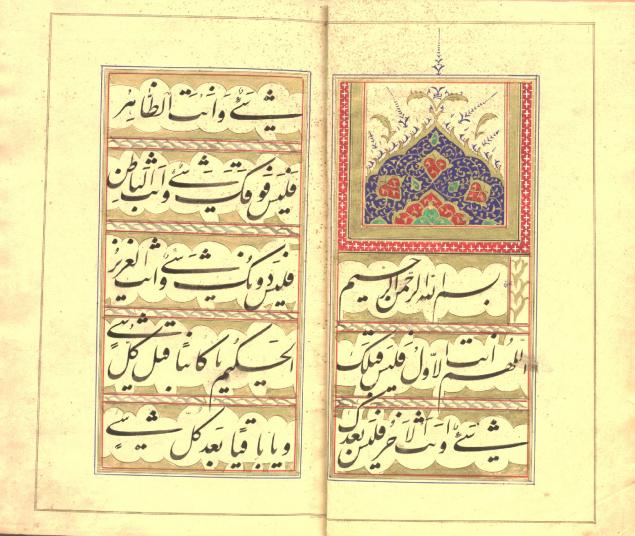 بسم الله الرحمن الرحیم
اللهم انت الاول فلیس قبلک
شیئ و انت الاخر فلیس بعدک
شیئ و انت الظاهر
فلیس فوقک شیئ و انت الباطن
فلیس دونک شیئ و انت العزیز
الحکیم یا کائنا قبل کل شیئ
و یا باقیا بعد کل شیئ